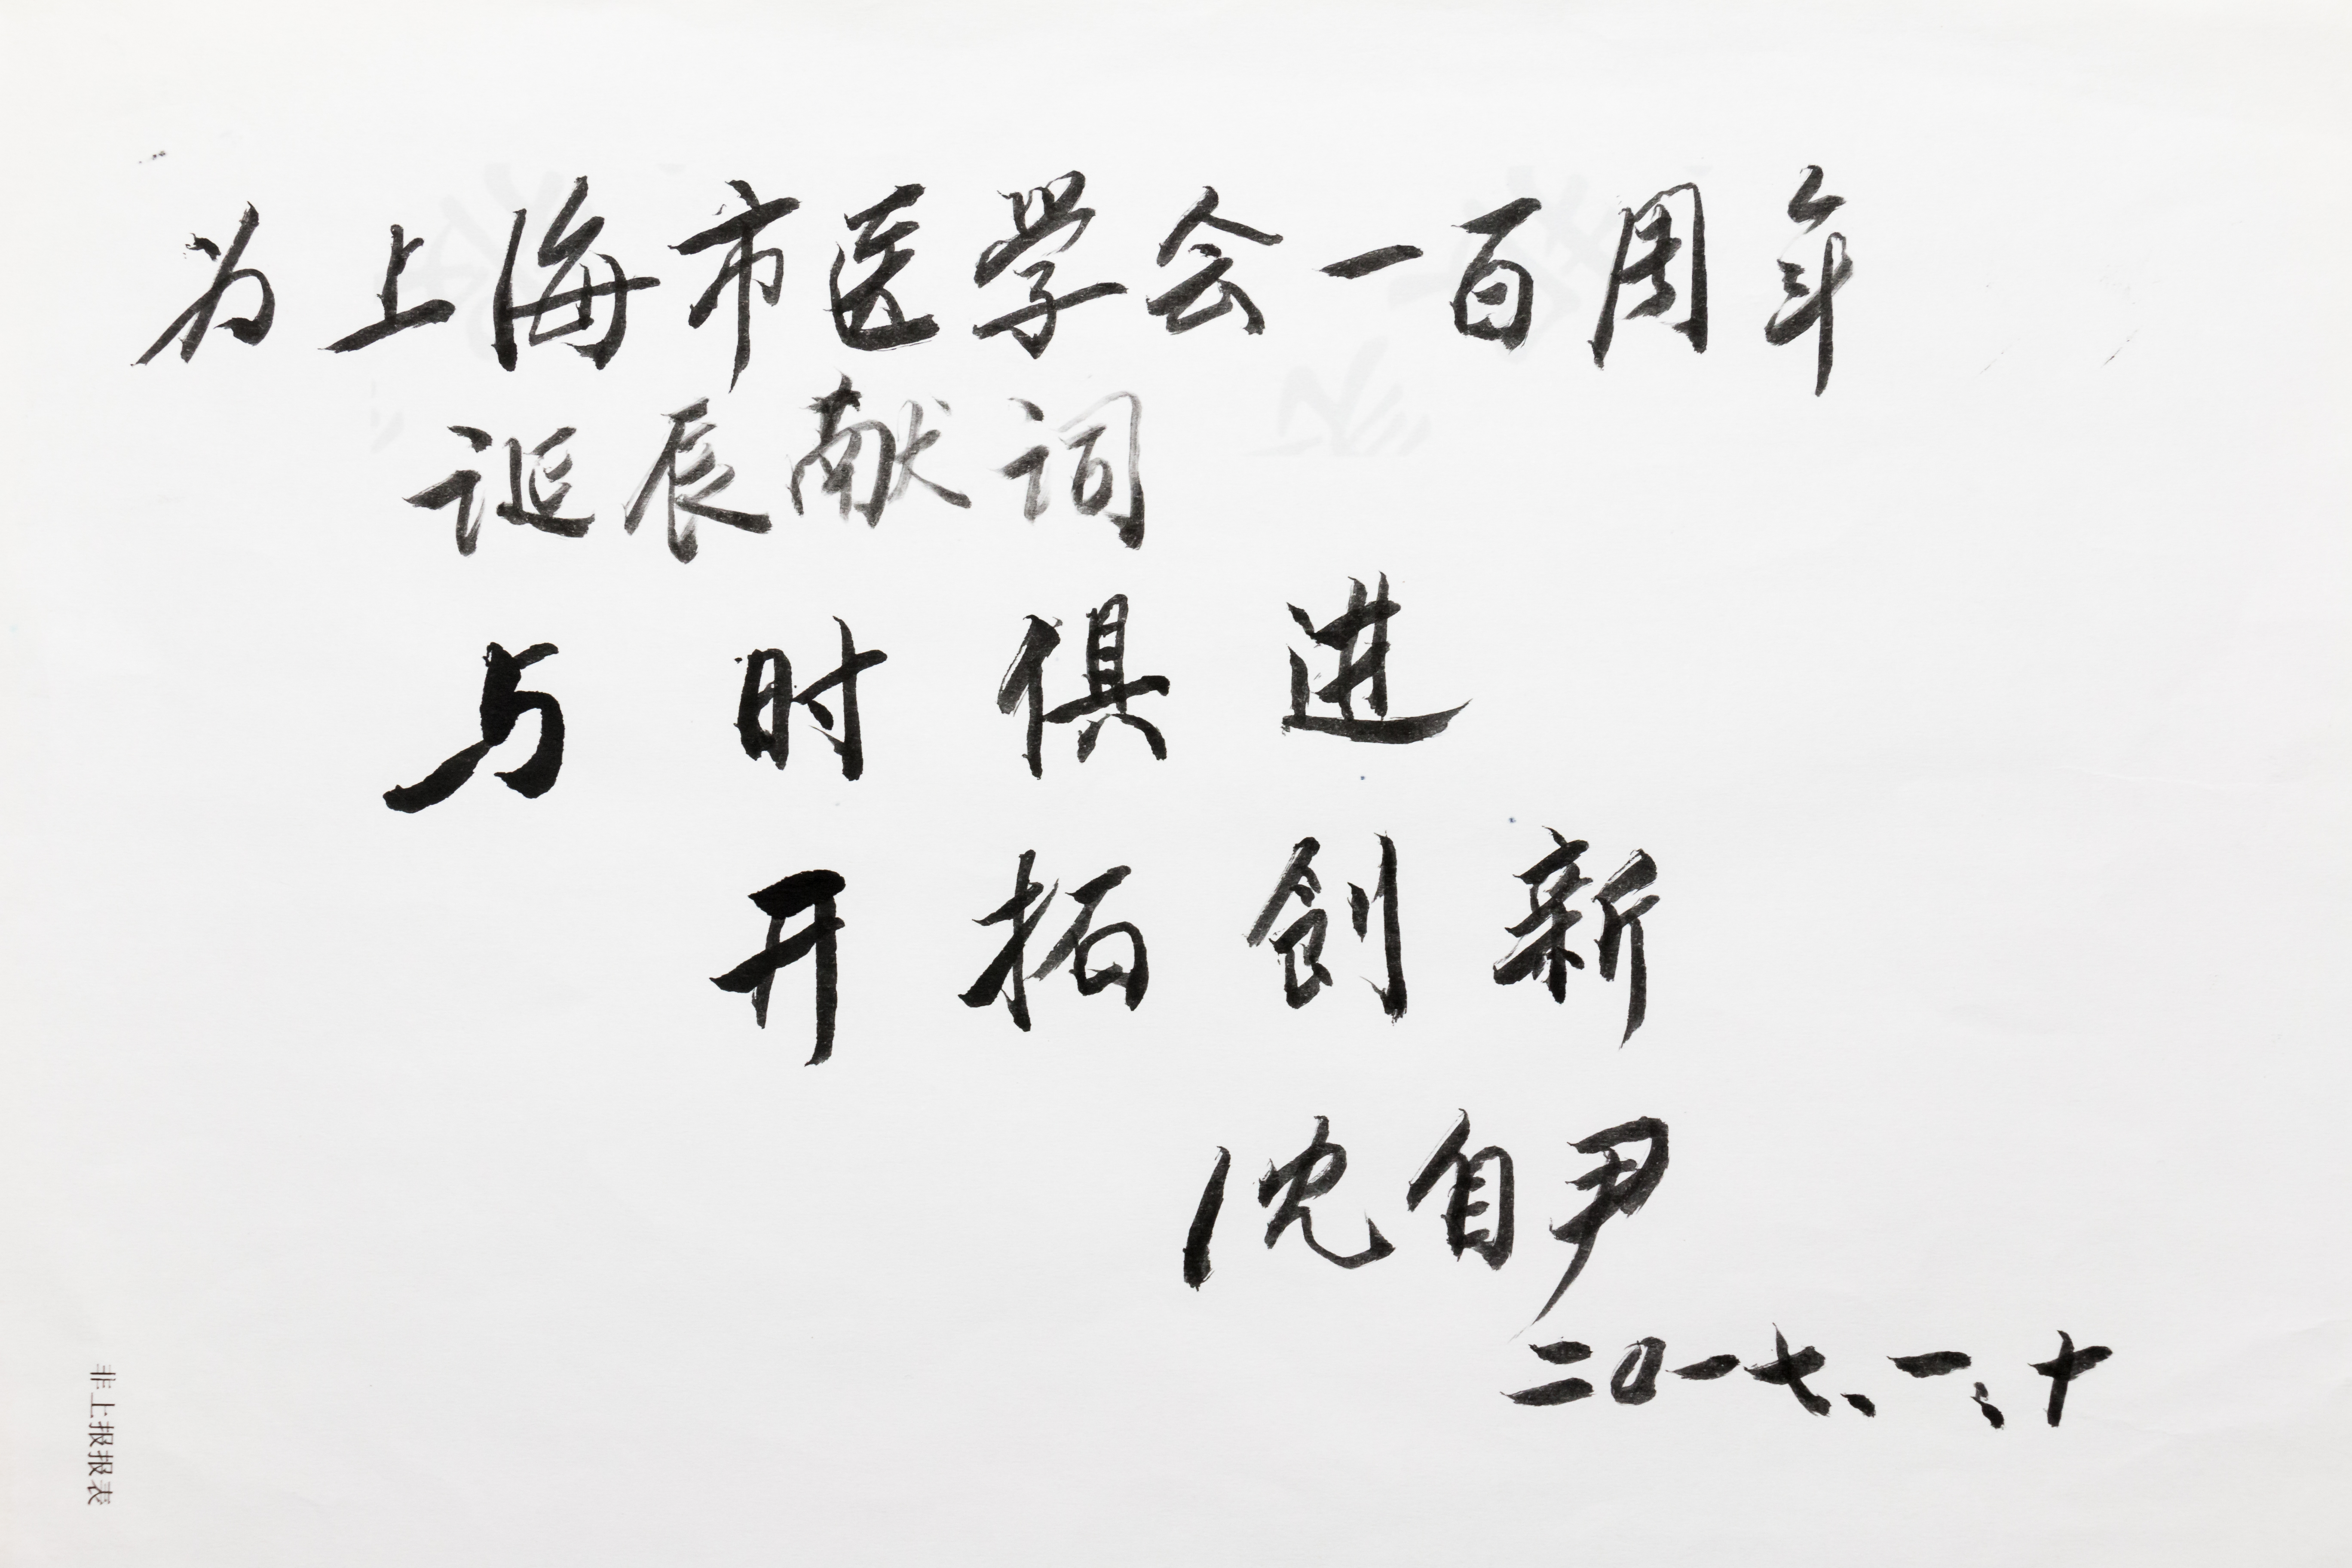 为上海市医学会一百周年
诞辰献词
与时俱进
开拓创新
沈自尹
二0一七、一、十
非上报报表